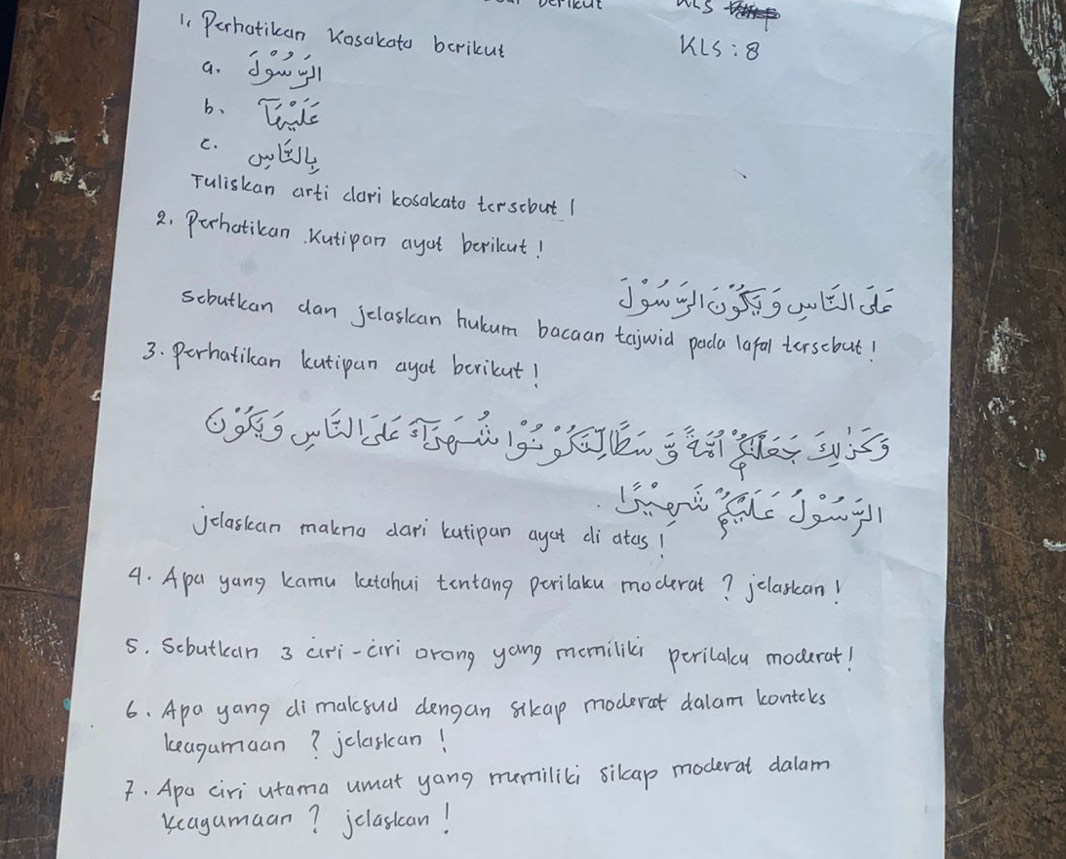 berikut
KLS
KLS : 8
1. Perhatikan Kosakata berikut
a. الرَّسُوْلَ
b. عَلَيْهَآ
c. بِالنَّاسِ
Tuliskan arti dari kosakata tersebut !
2. Perhatikan Kutipan ayat berikut !
عَلَى النَّاسِ وَيَكُوْنَ الرَّسُوْلَ
Sebutkan dan jelaskan hukum bacaan tajwid pada lafal tersebut !
3. Perhatikan kutipan ayat berikut !
وَكَذٰلِكَ جَعَلْنٰكُمْ اُمَّةً وَّسَطًا لِّتَكُوْنُوْا شُهَدَآءَ عَلَى النَّاسِ وَيَكُوْنَ
الرَّسُوْلُ عَلَيْكُمْ شَهِيْدًا.
jelaskan makna dari kutipan ayat di atas !
4. Apa yang kamu ketahui tentang perilaku moderat ? jelaskan !
5. Sebutkan 3 ciri-ciri orang yang memiliki perilaku moderat !
6. Apa yang di maksud dengan sikap moderat dalam konteks
keagamaan ? jelaskan !
7. Apa ciri utama umat yang memiliki sikap moderat dalam
keagamaan ? jelaskan !